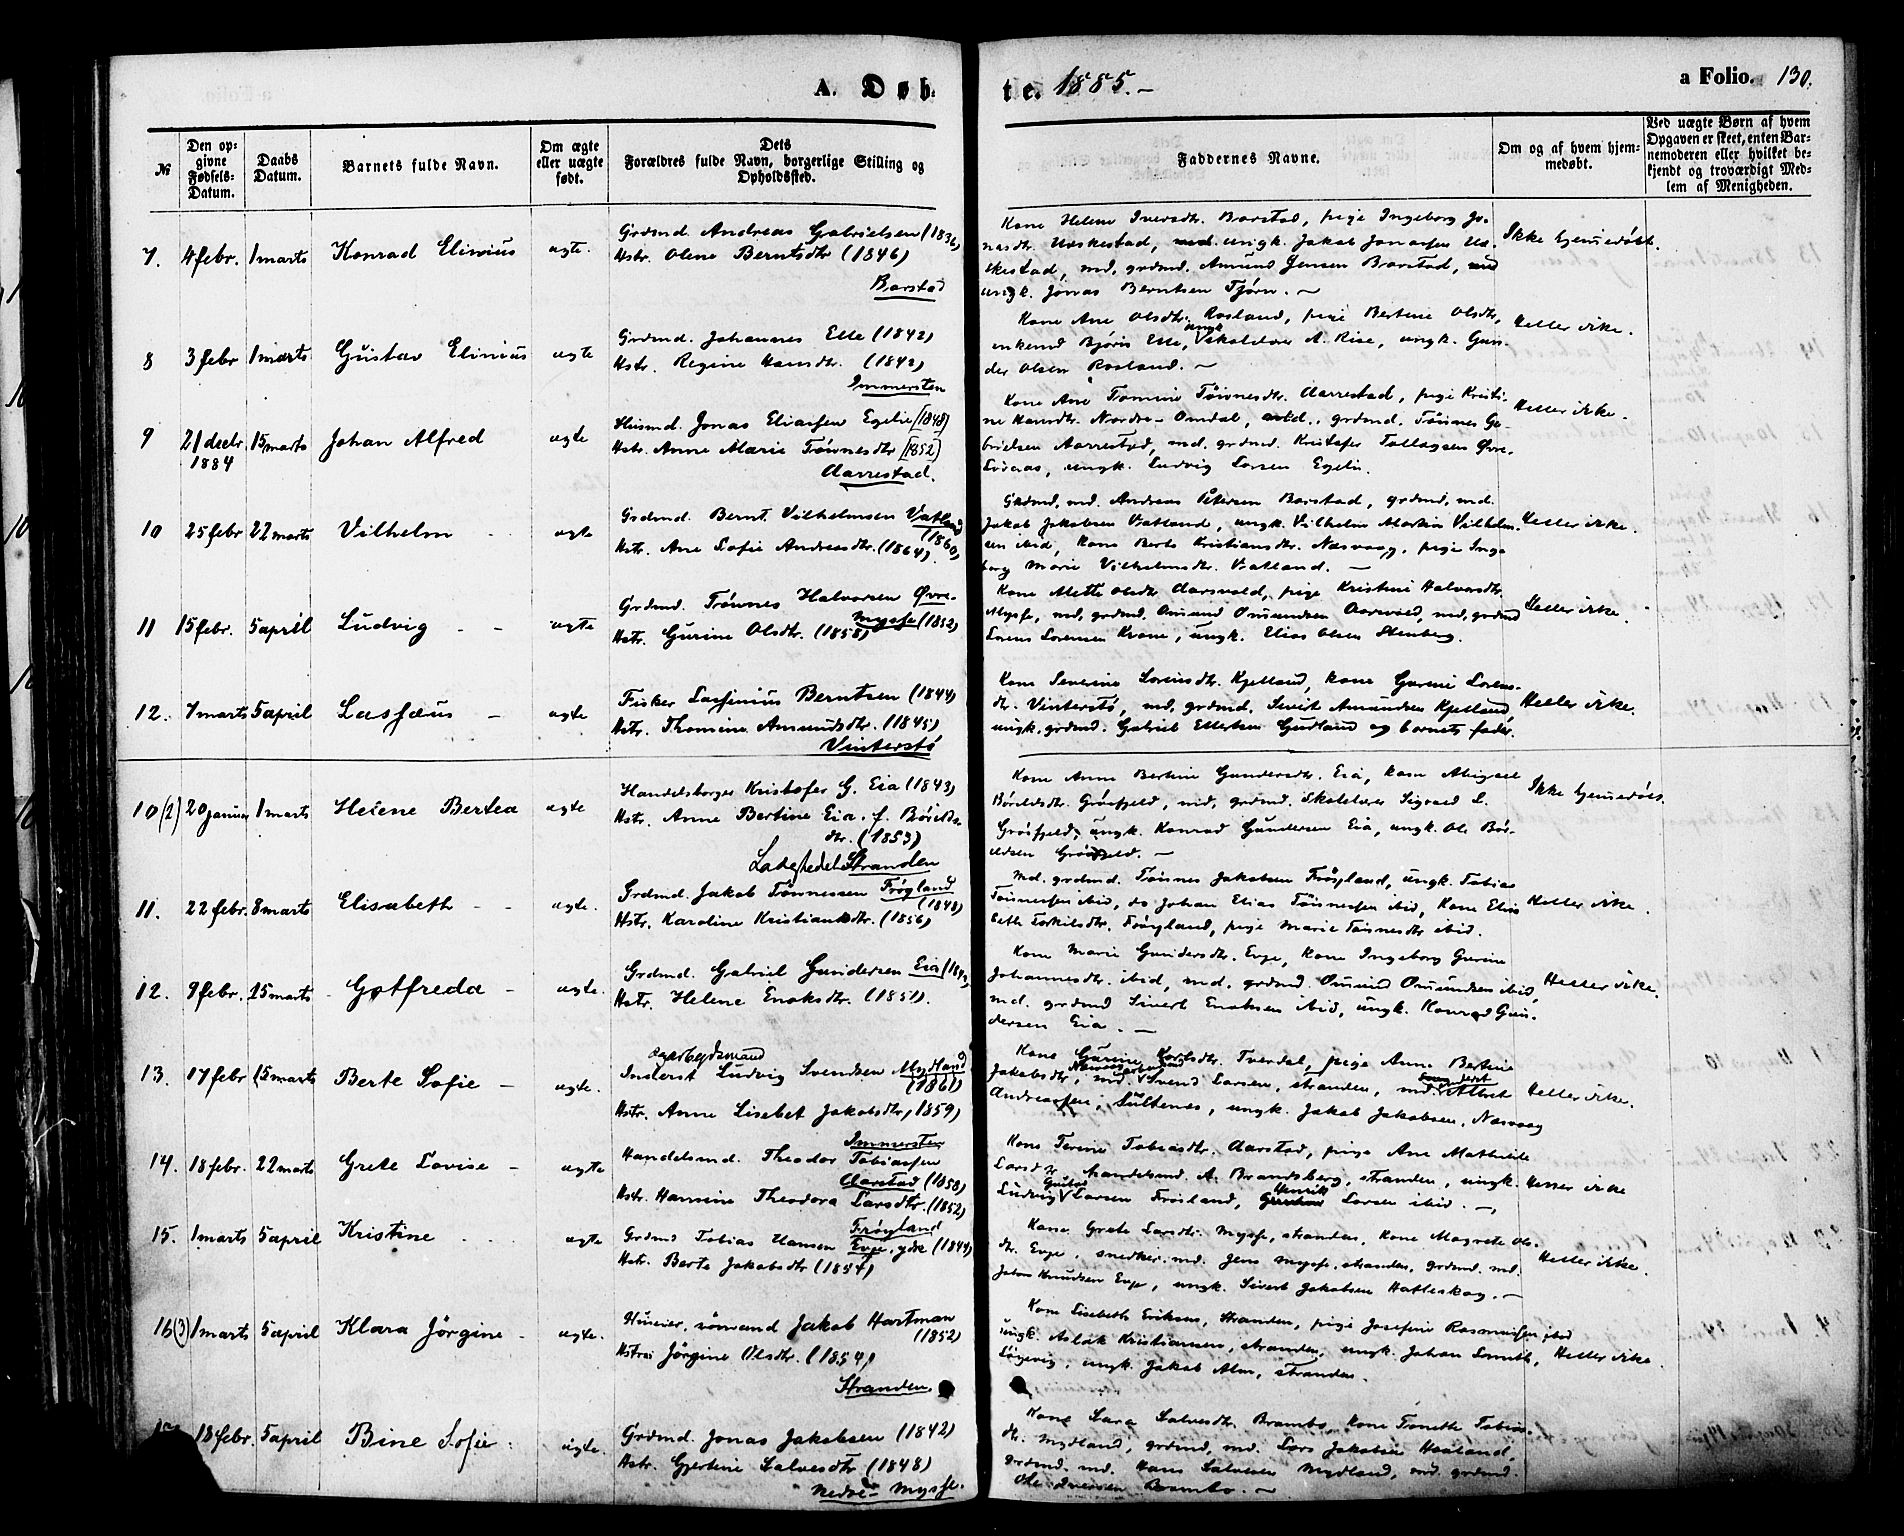 A. Døb
te. 1885.-
a Folio. 130.
№
Den op-
givne
Fødsels-
Datum.
Daabs
Datum.
Barnets fulde Navn.
Om ægte
eller uægte
født.
Dets
Forældres fulde Navn, borgerlige Stilling og
Opholdssted.
Faddernes Navne.
Om og af hvem hjem-
medøbt.
Ved uægte Børn af hvem
Opgaven er skeet, enten Bar-
nemoderen eller hvilket be-
kjendt og troværdigt Med-
lem af Menigheden.
7. 4 febr. 1 marts Konrad Elinius ægte.
Grdmd. Andreas Gabrielsen (1836)
Hstr. Olene Berntsdtr (1846)
Barstad
Kone Helene Iversdtr. Barstad, pige Ingeborg Jo-
nasdtr. Ueskestad, ungk. Jakob Jonassen Ues-
kestad, md. grdmd. Amund Jensen Barstad,
ungk. Jonas Berntsen Tjørn. —
Ikke hjemmedøbt.
8 3 febr 1 marts Gustav Elinius ægte
Grdmd. Johannes Elle (1842)
Hstr. Regine Hansdtr. (1842)
Immersten
Kone Ane Olsdtr. Rosland, pige Bertine Olsdtr,
enkemd Bjørn Elle, ungk Skolelærer A. Rise, ungk. Gun-
der Olsen Rosland. —
Heller ikke.
9 21 decbr 1884 15 marts Johan Alfred ægte
Husmd. Jonas Eliassen Egelie [1848]
Hstr. Anne Marie Tønnesdtr [1852]
Aarrestad.
Kone Ane Tomine Tønnesdtr. Aarrestad, pige Kristi-
ne Hansdtr. Nordre-Omdal, grdmd. Tønnes Ga-
brielsen Aarrestad, md. grdmd. Kristofer Tollagsen Øvre-
ungk. Ludvig Larsen Egelie.
Heller ikke.
10 25 febr 22 marts Vilhelm - - ægte
Grdmd. Bernt Vilhelmsen Vatland
(1860)
Hstr. Ane Sofie Andreasdtr. (1864)
Grdmd. md. Andreas Petersen Barstad, grdmd. md.
Jakob Jakobsen Vatland, ungk. Vilhelm Martin Vilhelm-
sen ibid, kone Berte Kristiansdtr. Næsvaag, pige Inge-
borg Marie Vilhelmsdtr. Vatland. —
Heller ikke.
11 15 febr. 5 april Ludvig - - ægte
Grdmd. Tønnes Halvorsen Øvre-
Mysse (1852)
Hstr. Gurine Olsdtr. (1858)
Kone Mette Olsdtr Aarsvold, pige Kristine Halvorsdtr.
Mysse, md, grdmd. Omund Omundsen Aarsvold, md. grdmd
Lorens Lorensen Kvane, ungk. Elias Olsen Stenberg.
Heller ikke.
12. 7 marts 5 april Lasfæus - ægte
Fisker Lasfinius Berntsen (1844)
Hstr. Thomine Amundsdtr. (1845)
Vinterstø
Kone Severine Lorensdtr. Kjelland, kone Gurine Lorens-
dtr. Vinterstø, md, grdmd, Sivert Amundsen Kjelland,
ungk. grdmd. Gabriel Ellertsen Gudland og barnets fader.
Heller ikke.
10(2) 20 januar 1 marts Helene Bertea ægte
Handelsborger Kristofer G. Eia (1843)
Hstr. Anne Bertine Eia. f. Børilds-
dtr. (1853)
Ladestedet Stranden
Kone Anne Bertine Gundersdtr. Eia, kone Abigael
Børildsdtr. Grøsfjeld, md, grdmd. Skolelærer Sigvald L.
Grøsfjeld, ungk. Konrad Gundersen Eia, ungk. Ole Bør-
ildsen Grøsfjeld. —
Ikke hjemmedøbt.
11. 22 febr. 8 marts Elisabeth - - ægte.
Grdmd. Jakob Tønnessen Frøgland
(1848)
Hstr. Karoline Kristiansdtr. (1856)
Md. grdmd. Tønnes Jakobsen Frøgland, ungk. Tobias
Tønnessen ibid, do Johan Elias Tønnessen ibid, Kone Elisa-
beth Torkilsdtr. Frøgland, pige Marie Tønnesdtr ibid.
Heller ikke.
12. 9 febr. 15 marts - Gotfreda - ægte.
Grdmd. Gabriel Gundersen Eia
Hstr. Helene Enoksdtr. (1851).
Kone Marie Gundersdtr. Evje, kone Ingeborg Gurine
Johannesdtr. ibid, md. grdmd. Omund Omundsen ibid,
md. grdmd Sivert Enoksen ibid, ungk. Konrad Gun-
dersen Eia. —
Heller ikke.
13. 17 febr 15 marts Berte Sofie - ægte.
og arbejdsmand
Inderst Ludvig Svendsen Mydland
(1861)
Hstr. Anne Lisebet Jakobsdtr, 1859)
Kone Gurine Karlsdtr. Tverdal, pige Anne Bertine
Jakobsdtr, md. Svend Larsen, stranden, md.
Andreassen, Sultenes, ungk. Jakob Jakobsen, Næsvaag
Heller ikke.
14. 18 febr. 22 marts Grete Lovise - ægte
Immersten
Handelsmd. Theodor Tobiassen
Aarstad (1858)
Hstr. Hansine Theodora Larsdtr. (1852)
Kone Terine Tobiasdtr. Aarstad, pige Ane Mathilde
Larsdtr, handelsmd. A. Brandsberg, stranden, ungk.
Ludvig Gustav Larsen Frøsland, Henrik Larsen ibid. —
Heller ikke
15. 1 marts 5 april Kristine - - - ægte
Frøyland
Grdmd Tobias Hansen Evje, ydre (1844)
Hstr. Berte Jakobsdtr (1854)
Kone Grete Larsdtr. Mysse, stranden, Kone Magrete Ols-
dtr. Evje, snedker. md. Jens Mysse, stranden, grdmd. md.
Johan Knudsen Evje, ungk. Sivert Jakobsen Hatleskog. —
Heller ikke.
16(3) 1 marts 5 april Klara Jørgine - ægte.
Huseier, sømand Jakob Hartman
(1852)
Hstr. Jørgine Olsdtr. (1854)
Stranden.
Kone Lisebeth Eriksen, Stranden, pige Josefine Rasmussen ibid
ungk. Aslak Kristiansen, stranden, ungk. Johan Smith,
ungk. Jakob Alm, stranden.
Heller ikke.
18 febr. 5 april Bine Sofie. ægte.
Grdmd. Jonas Jakobsen (1842)
Hstr. Gjertine Salvesdtr (1848)
Nedre-Mysse.
Kone Sara Salvesdtr. Brambo, Kone Tonette Tobias-
dtr. Mydland, grdmd, md. Lars Jakobsen Haaland,
grdmd. md. Hans Salvesen Mydland, md. grdmd.
Ole Iversen Brambo. —